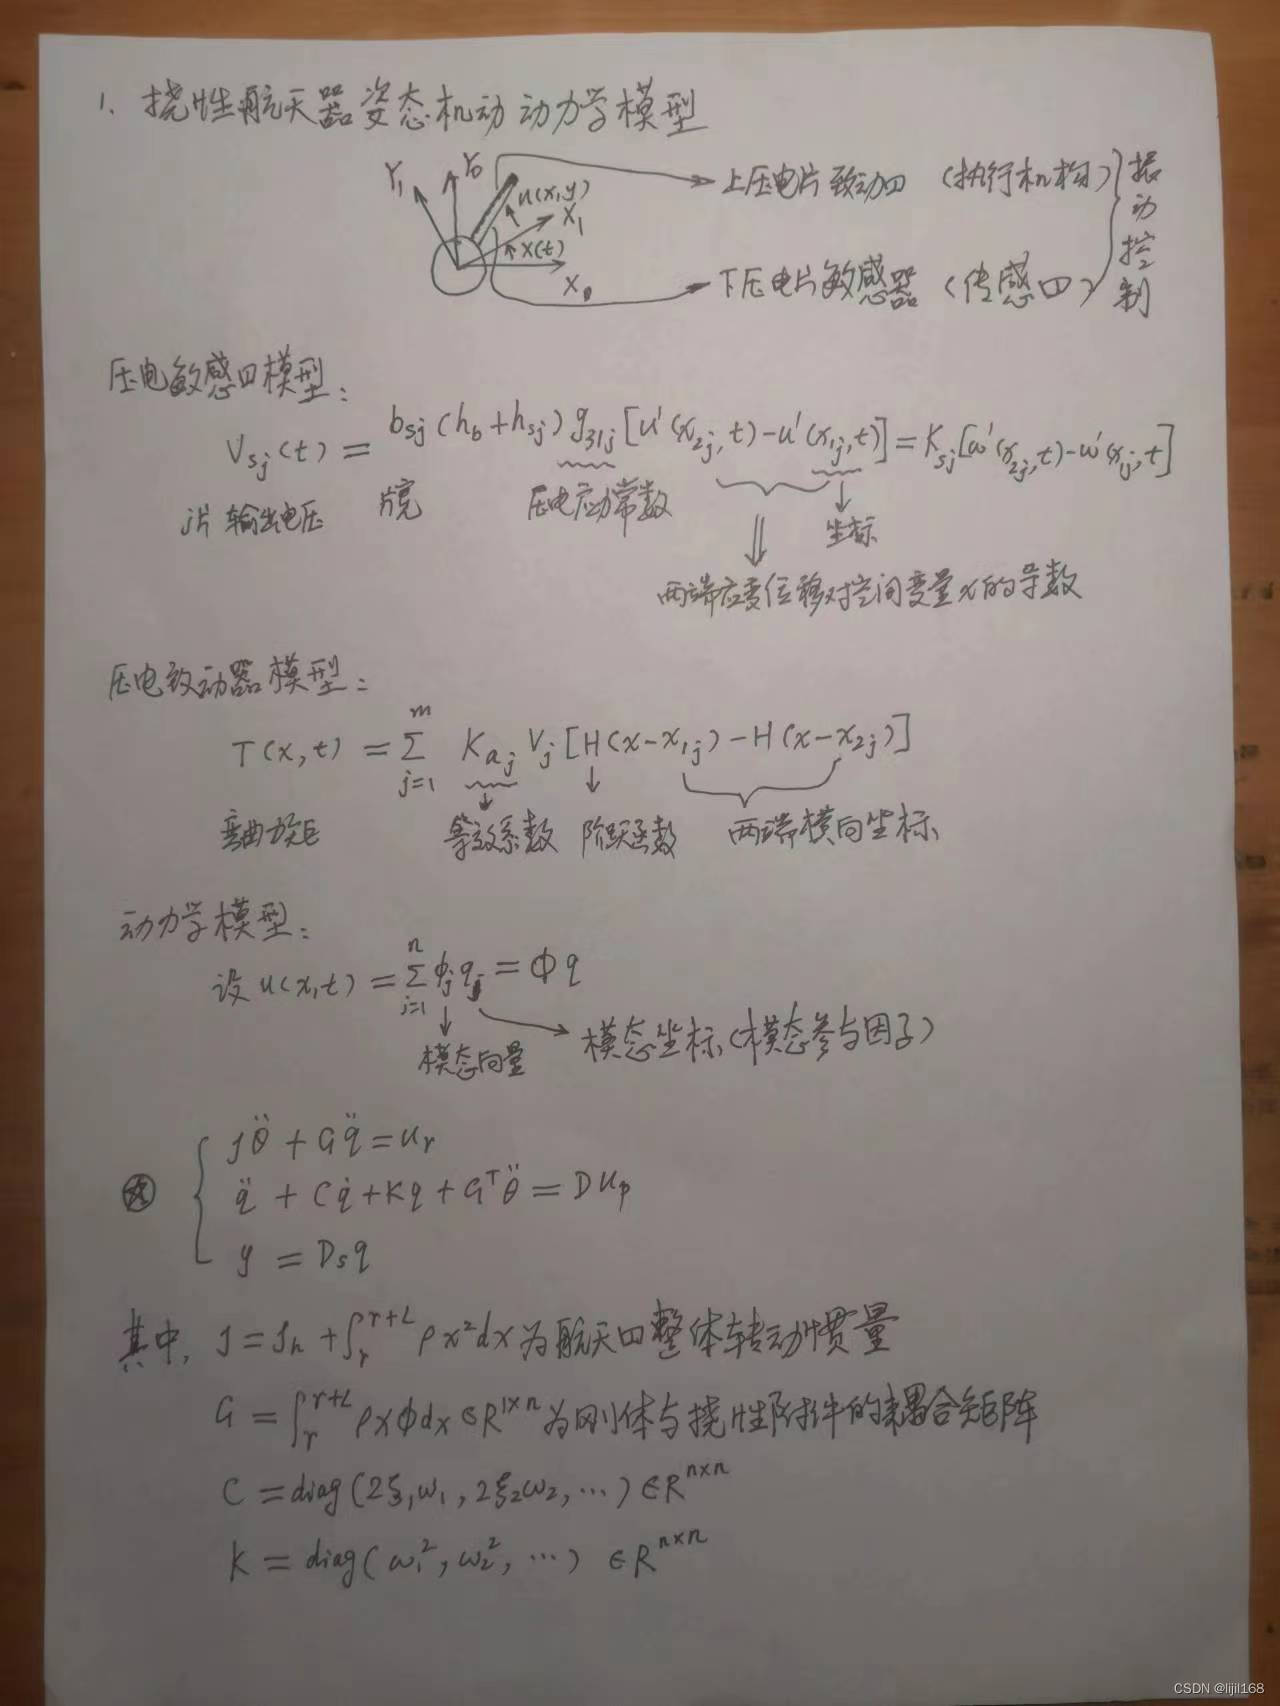 1. 挠性航天器姿态机动动力学模型
Y₁ Y₀ u(x,y) X₁ X(t) X₀
上压电片致动口 (执行机构)
下压电片敏感器 (传感口)
振动控制
压电敏感口模型:
V_sj(t) = b_sj(h_b+h_sj)g_31j[u'(x_2j,t)-u'(x_1j,t)] = K_sj[w'(x_2j,t)-w'(x_1j,t]
j片输出电压 片宽 压电应力常数 坐标
两端应变位移对空间变量x的导数
压电致动器模型:
T(x,t) = Σ_{j=1}^{m} K_aj V_j [H(x-x_1j)-H(x-x_2j)]
弯曲力矩 等效系数 阶跃函数 两端横向坐标
动力学模型:
设 u(x,t) = Σ_{i=1}^{n} ϕ_j q_j = Φq
模态向量 模态坐标(模态参与因子)
Jθ̈ + Gq̈ = u_r
q̈ + Cq̇ + Kq + Gᵀθ̈ = Du_p
y = D_s q
其中, J = J_h + ∫_r^{r+L} ρx²dx 为航天口整体转动惯量
G = ∫_r^{r+L} ρxϕdx ∈ R^{1×n} 为刚体与挠性附件的耦合矩阵
C = diag(2ξ₁ω₁, 2ξ₂ω₂, …) ∈ R^{n×n}
K = diag(ω₁², ω₂², …) ∈ R^{n×n}
CSDN @lijil168